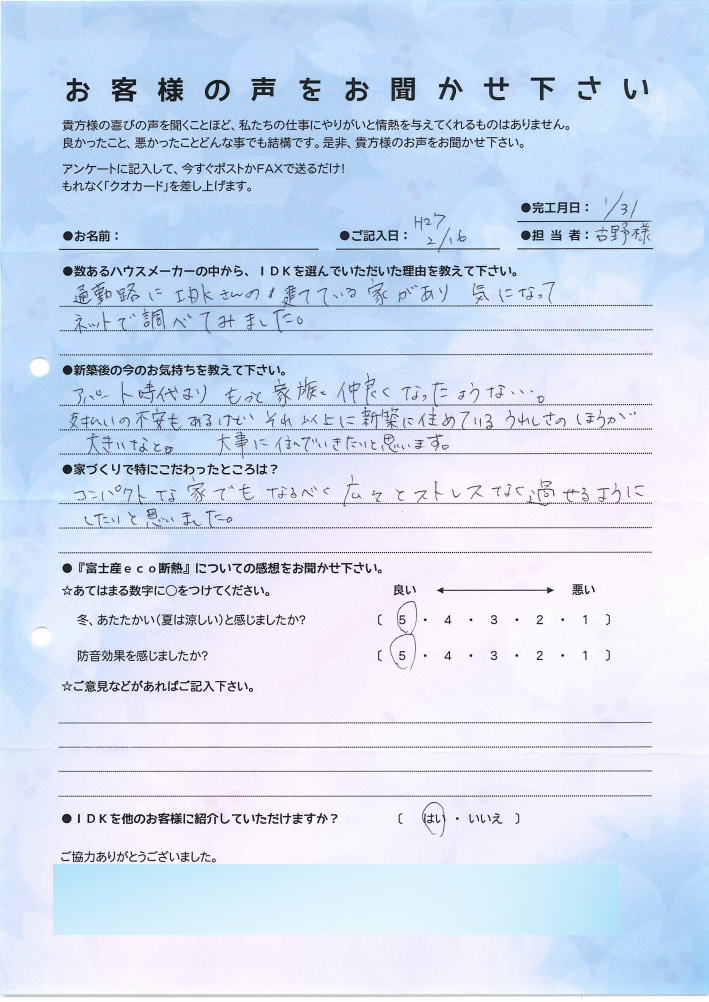 お客様の声をお聞かせ下さい
貴方様の喜びの声を聞くことほど、私たちの仕事にやりがいと情熱を与えてくれるものはありません。
良かったこと、悪かったことどんな事でも結構です。是非、貴方様のお声をお聞かせ下さい。
アンケートに記入して、今すぐポストかFAXで送るだけ!
もれなく「クオカード」を差し上げます。
●完工月日： 1/31
●お名前： ●ご記入日： H27 2/16 ●担当者： 古野様
●数あるハウスメーカーの中から、IDKを選んでいただいた理由を教えて下さい。
通勤路にIDKさんの建てている家があり 気になって
ネットで調べてみました。
●新築後の今のお気持ちを教えて下さい。
アパート時代より もっと家族と仲良くなったような…。
支払いの不安もあるけど それ以上に新築に住めているうれしさのほうが
大きいなと。 大事に住んでいきたいと思います。
●家づくりで特にこだわったところは?
コンパクトな家でもなるべく広々とストレスなく過せるように
したいと思いました。
●『富士産eco断熱』についての感想をお聞かせ下さい。
☆あてはまる数字に○をつけてください。 良い 悪い
冬、あたたかい(夏は涼しい)と感じましたか? 〔 5 ・ 4 ・ 3 ・ 2 ・ 1 〕
防音効果を感じましたか? 〔 5 ・ 4 ・ 3 ・ 2 ・ 1 〕
☆ご意見などがあればご記入下さい。
●IDKを他のお客様に紹介していただけますか? 〔 はい ・ いいえ 〕
ご協力ありがとうございました。